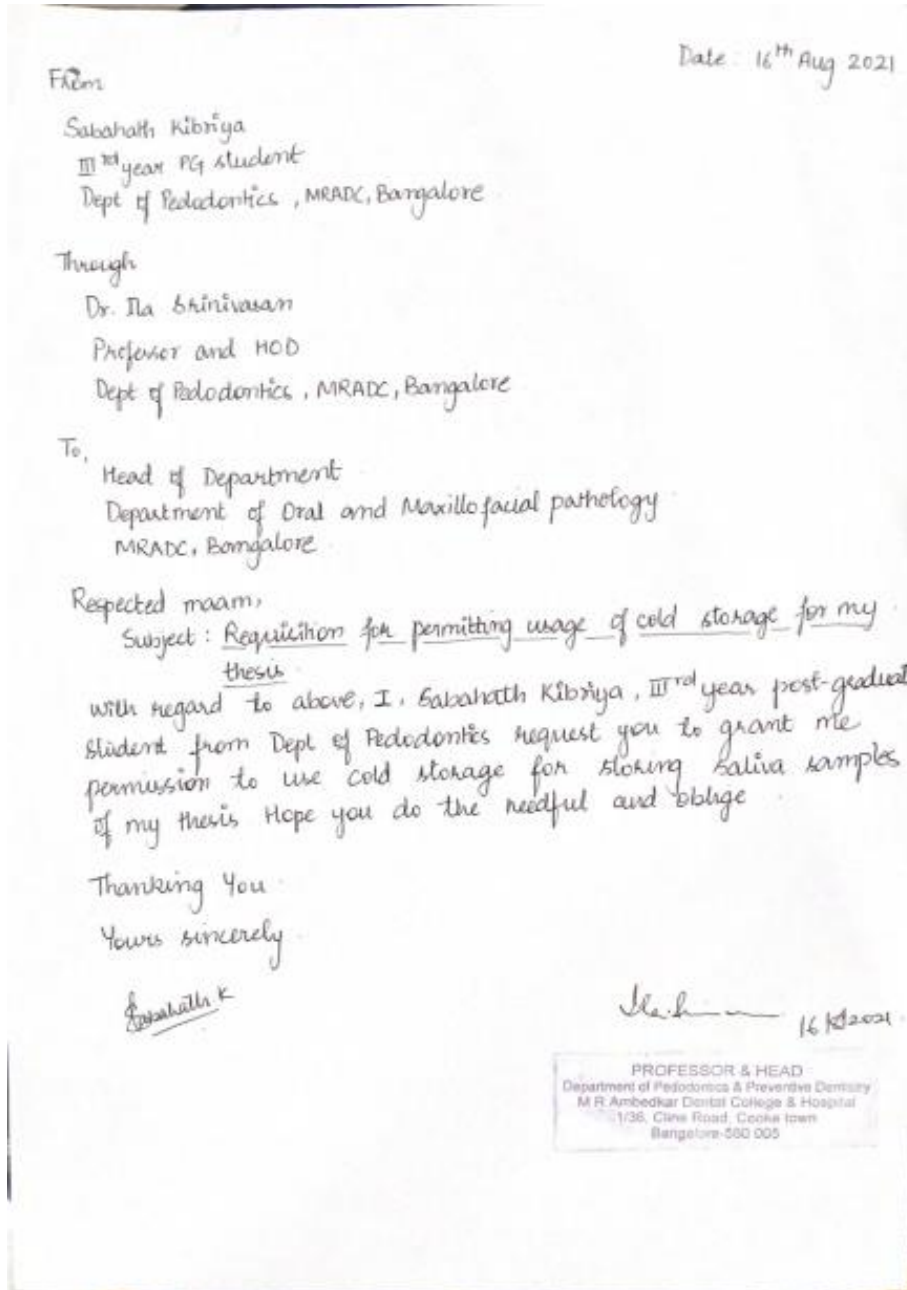 Date: 16th Aug 2021
From
Sabahath Kibriya
IIIrd year PG student
Dept of Pedodontics, MRADC, Bangalore
Through
Dr. Ila Srinivasan
Professor and HOD
Dept of Pedodontics, MRADC, Bangalore
To,
Head of Department
Department of Oral and Maxillofacial pathology
MRADC, Bangalore
Respected maam,
Subject: Requicition for permitting usage of cold storage for my
thesis
with regard to above, I, Sabahath Kibriya, IIIrd year post-graduat
student from Dept of Pedodontics request you to grant me
permission to use cold storage for storing saliva samples
of my thesis Hope you do the needful and oblige
Thanking You
Yours sincerely
Sabahath K
2021
PROFESSOR & HEAD
Department of Pedodontics & Preventive Dentistry
M R Ambedkar Dental College & Hospital
1/36, Cline Road, Cooke town
Bangalore-560 005